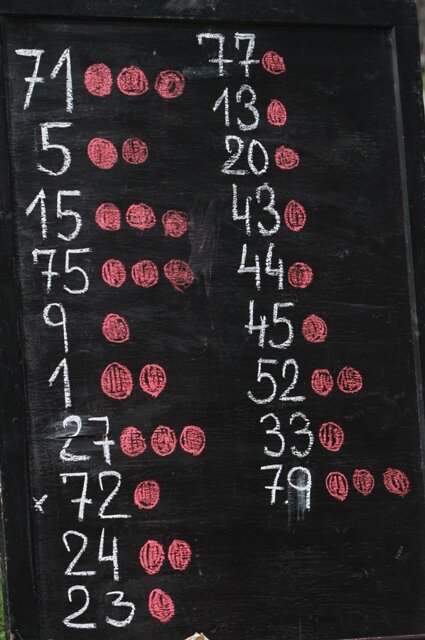 71
5
15
75
9
1
27
x 72
24
23
77
13
20
43
44
45
52
33
79